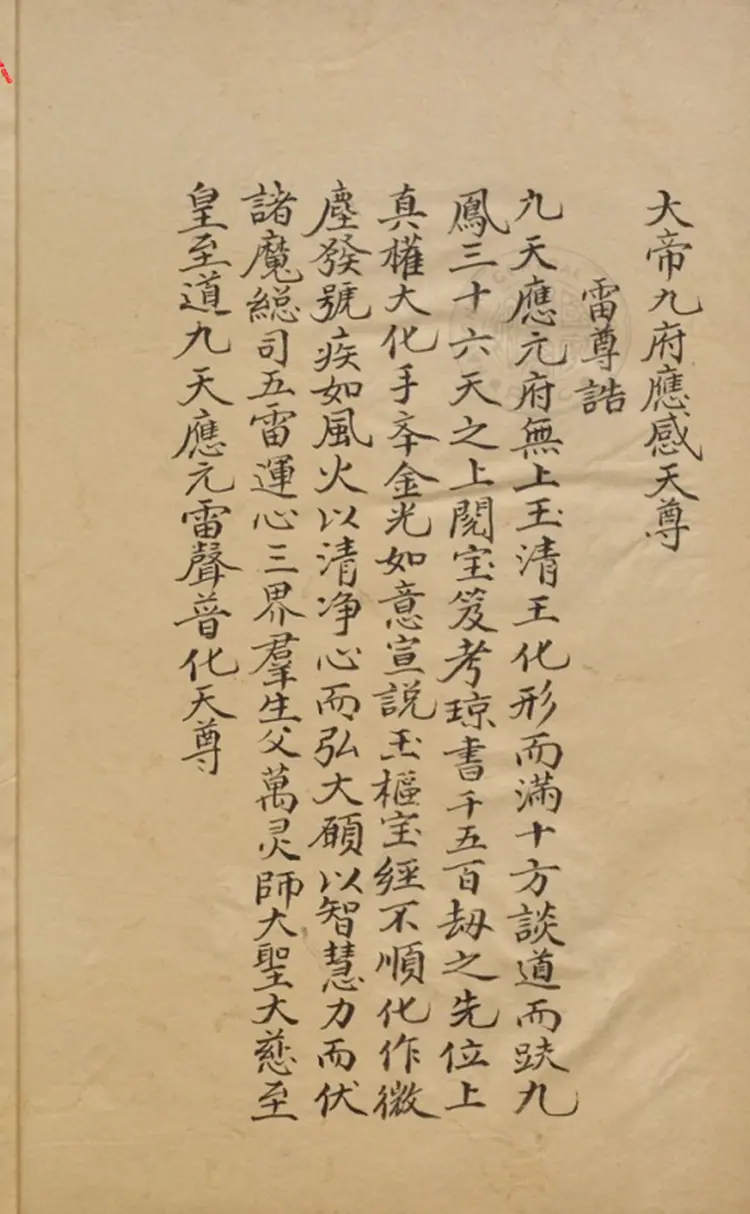 大帝九府應感天尊
雷尊誥
九天應元府無上玉清王化形而滿十方談道而趺九
鳳三十六天之上閱宝笈考琼書千五百劫之先位上
真權大化手㪯金光如意宣説玉樞宝經不順化作微
塵發號疾如風火以清净心而弘大願以智慧力而伏
諸魔總司五雷運心三界羣生父萬灵師大聖大慈至
皇至道九天應元雷聲普化天尊